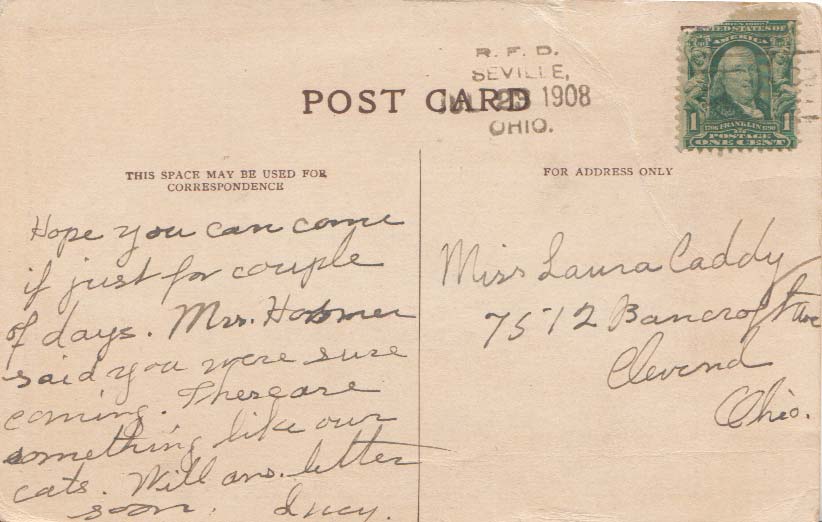 R. F. D.
SEVILLE,
JUL 29 1908
OHIO.
UNITED STATES OF
AMERICA
1 1
1706 FRANKLIN 1790
POSTAGE
ONE CENT
POST CARD
THIS SPACE MAY BE USED FOR
CORRESPONDENCE
Hope you can come
if just for couple
of days. Mrs.
said you were sure
coming. These are
something like our
cats. Will ans. letter
soon. Lucy.
FOR ADDRESS ONLY
Miss Laura Caddy
7512 Bancroft Ave
Clevend
Ohio.